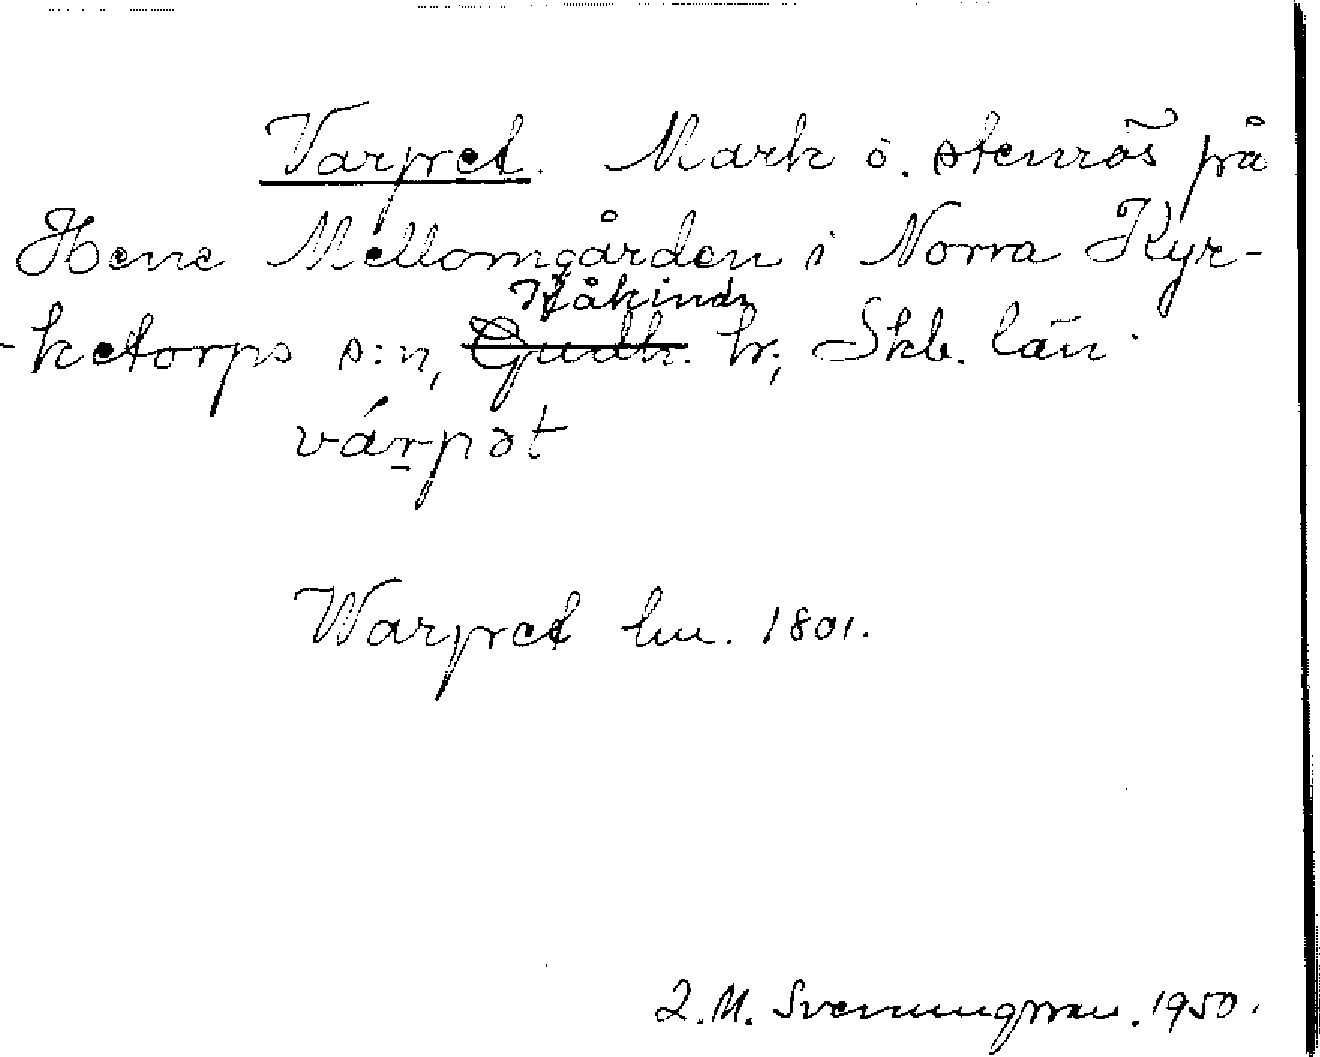 Varpet. Mark o. stenrös på
Hene Mellomgården i Norra Kyr-
Kåkinds
-ketorps s:n, Gudh. hr, Skb. län.
várpət
Warpet hu. 1801.
2.M. Svenungsson. 1950.